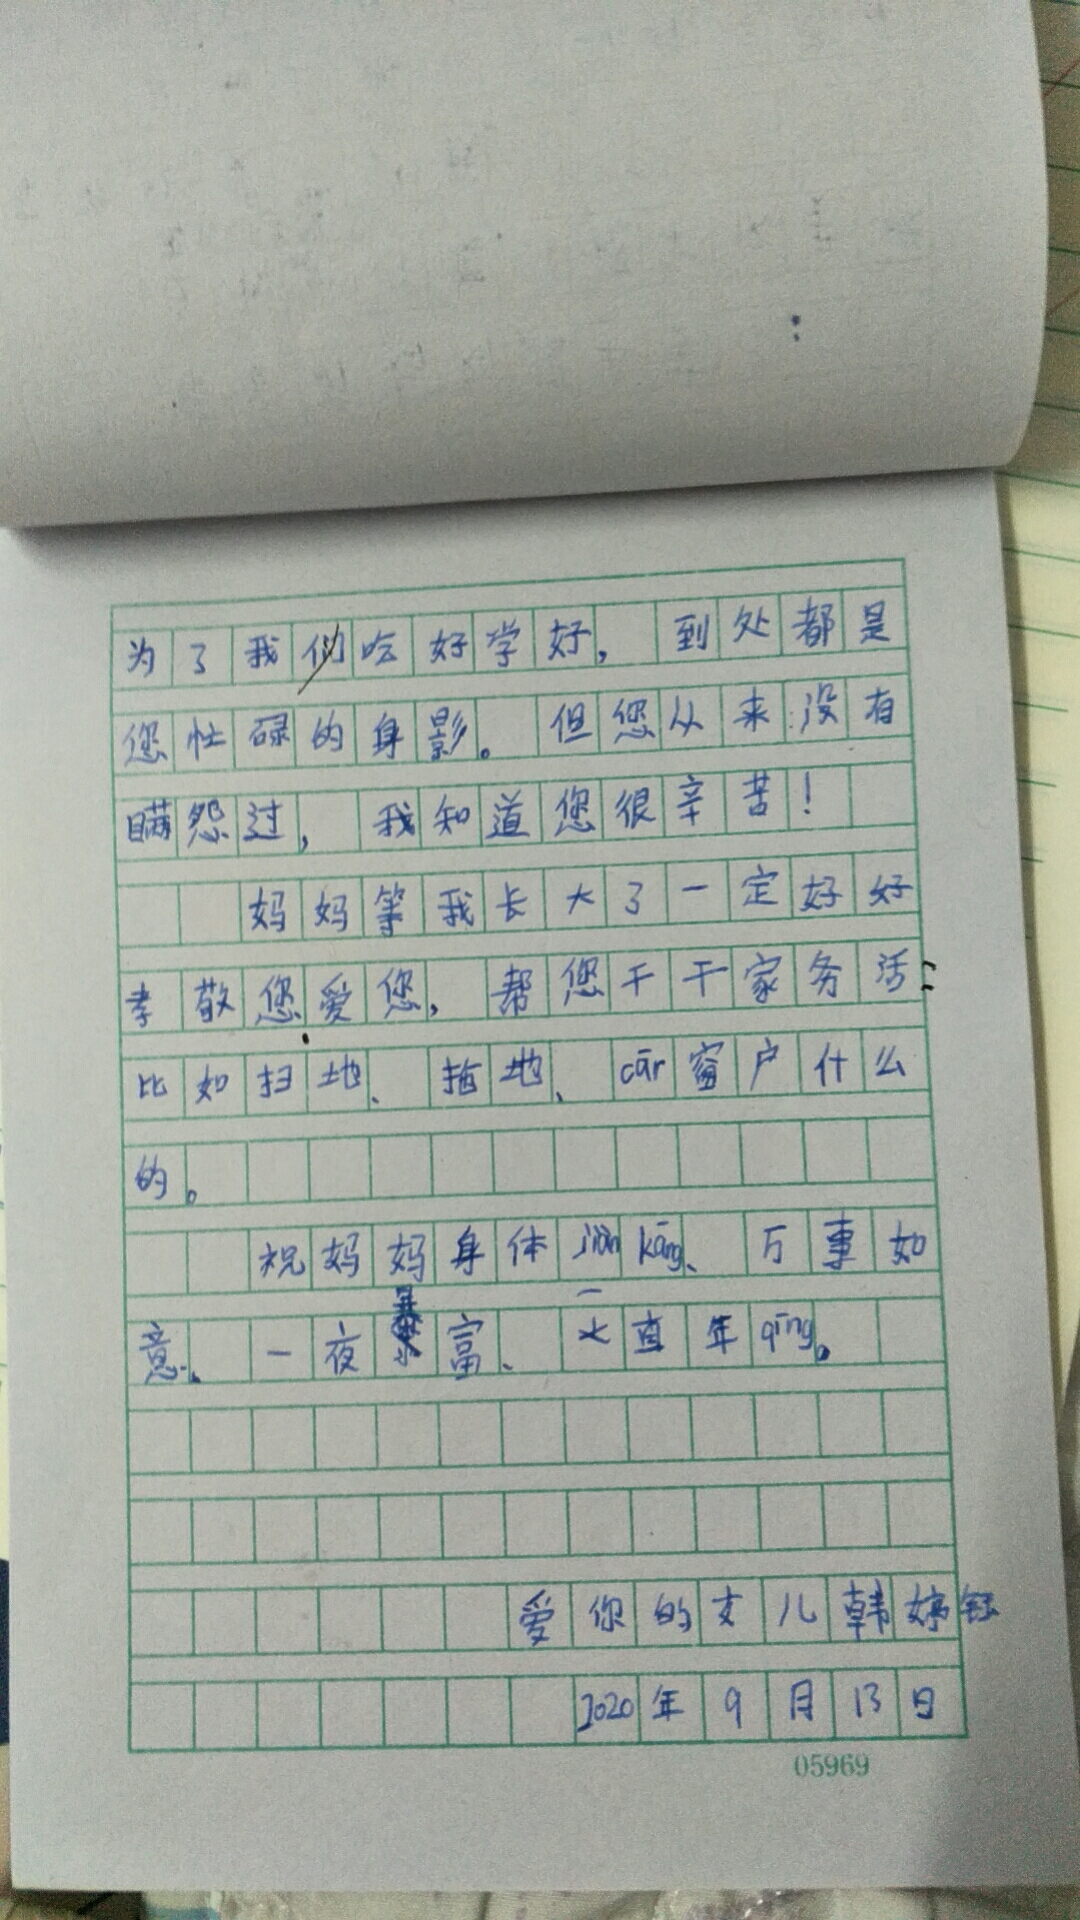 为了我们吃好学好，到处都是
您忙碌的身影。但您从来没有
瞒怨过，我知道您很辛苦！
妈妈等我长大了一定好好
孝敬您爱您，帮您干干家务活：
比如扫地、拖地、cār窗户什么
的。
祝妈妈身体jiàn kāng、万事如
意、一夜暴富、一直年qīng。
爱你的女儿韩婷钰
2020年9月13日
05969